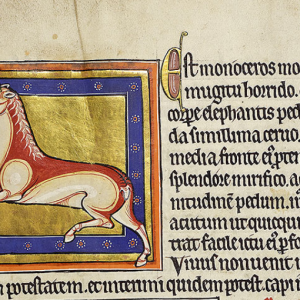 Est monoceros mo
mugitu horrido.
corpe elephantis ped
da simillima ceruo
media fronte ei' pre
splendore mirifico. a
nitudinem pedum. i
acutum ut quicqui
trat. facile ictu ei' pfo
Viuus non uenit
in potestatem. et interimi quidem potest. capi